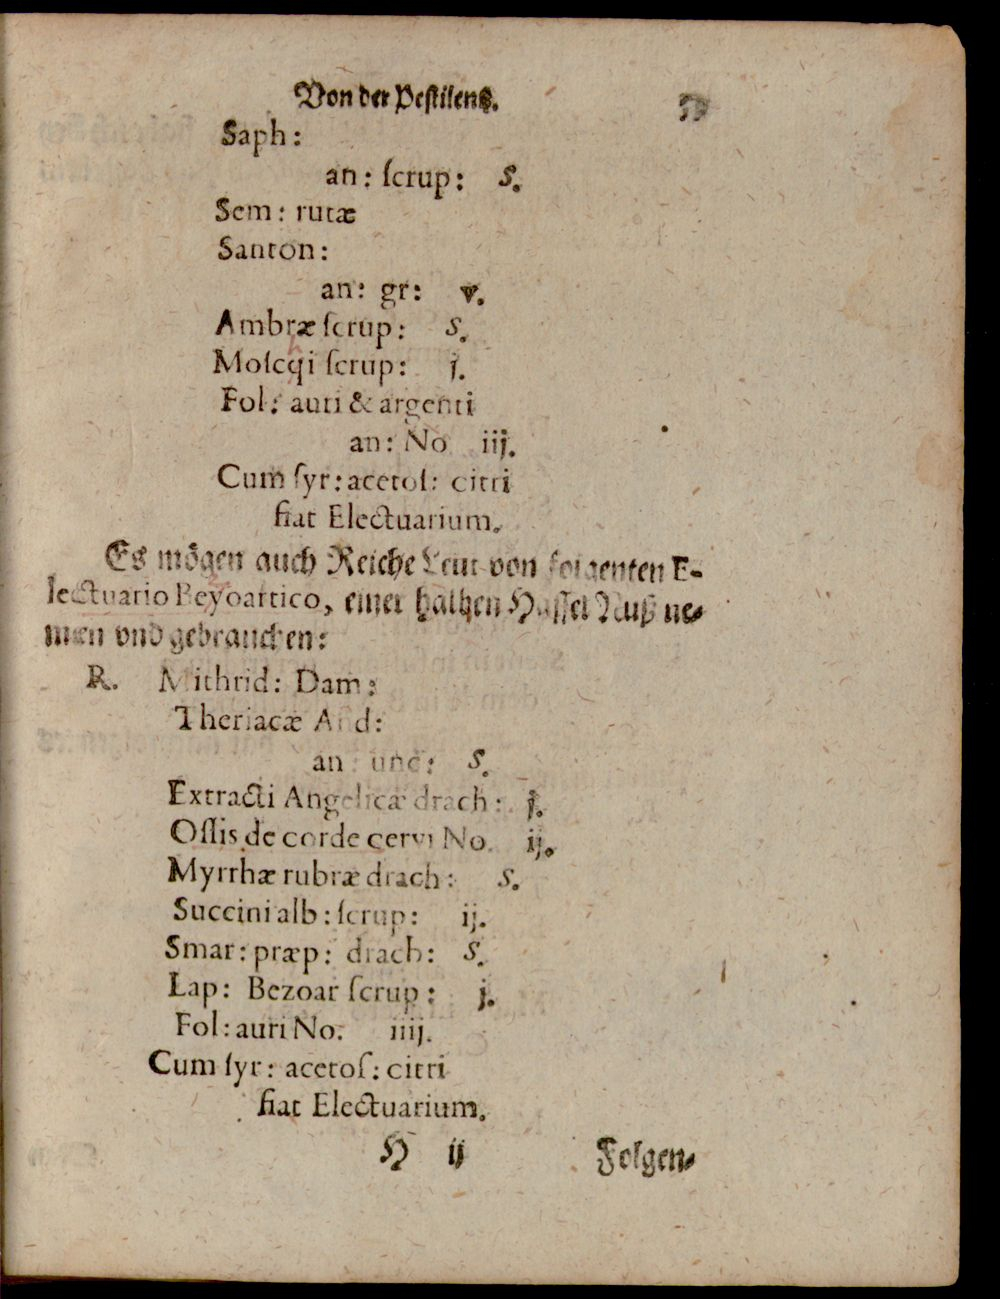 Von der Pestilentz. 59
Saph:
an: ſcrup: S.
Sem: rutæ
Santon:
an: gr: v.
Ambræ ſcrup: S.
Moſcqi ſcrup: j.
Fol: auri & argenti
an: No iij.
Cum ſyr: acetoſ: citri
fiat Electuarium.
Es mögen auch Reiche Leut von folgenten E-
lectuario Beyoartico, einer halben Hassel Nuß ne-
men vnd gebrauchen:
R. Mithrid: Dam:
Theriacæ And:
an unc: S.
Extracti Angelicæ drach: j.
Oſſis de corde cervi No. ij.
Myrrhæ rubræ drach: S.
Succini alb: ſcrup: ij.
Smar: præp: drach: S.
Lap: Bezoar ſcrup: j.
Fol: auri No. iiij.
Cum ſyr: acetoſ: citri
fiat Electuarium.
H ij Folgen-